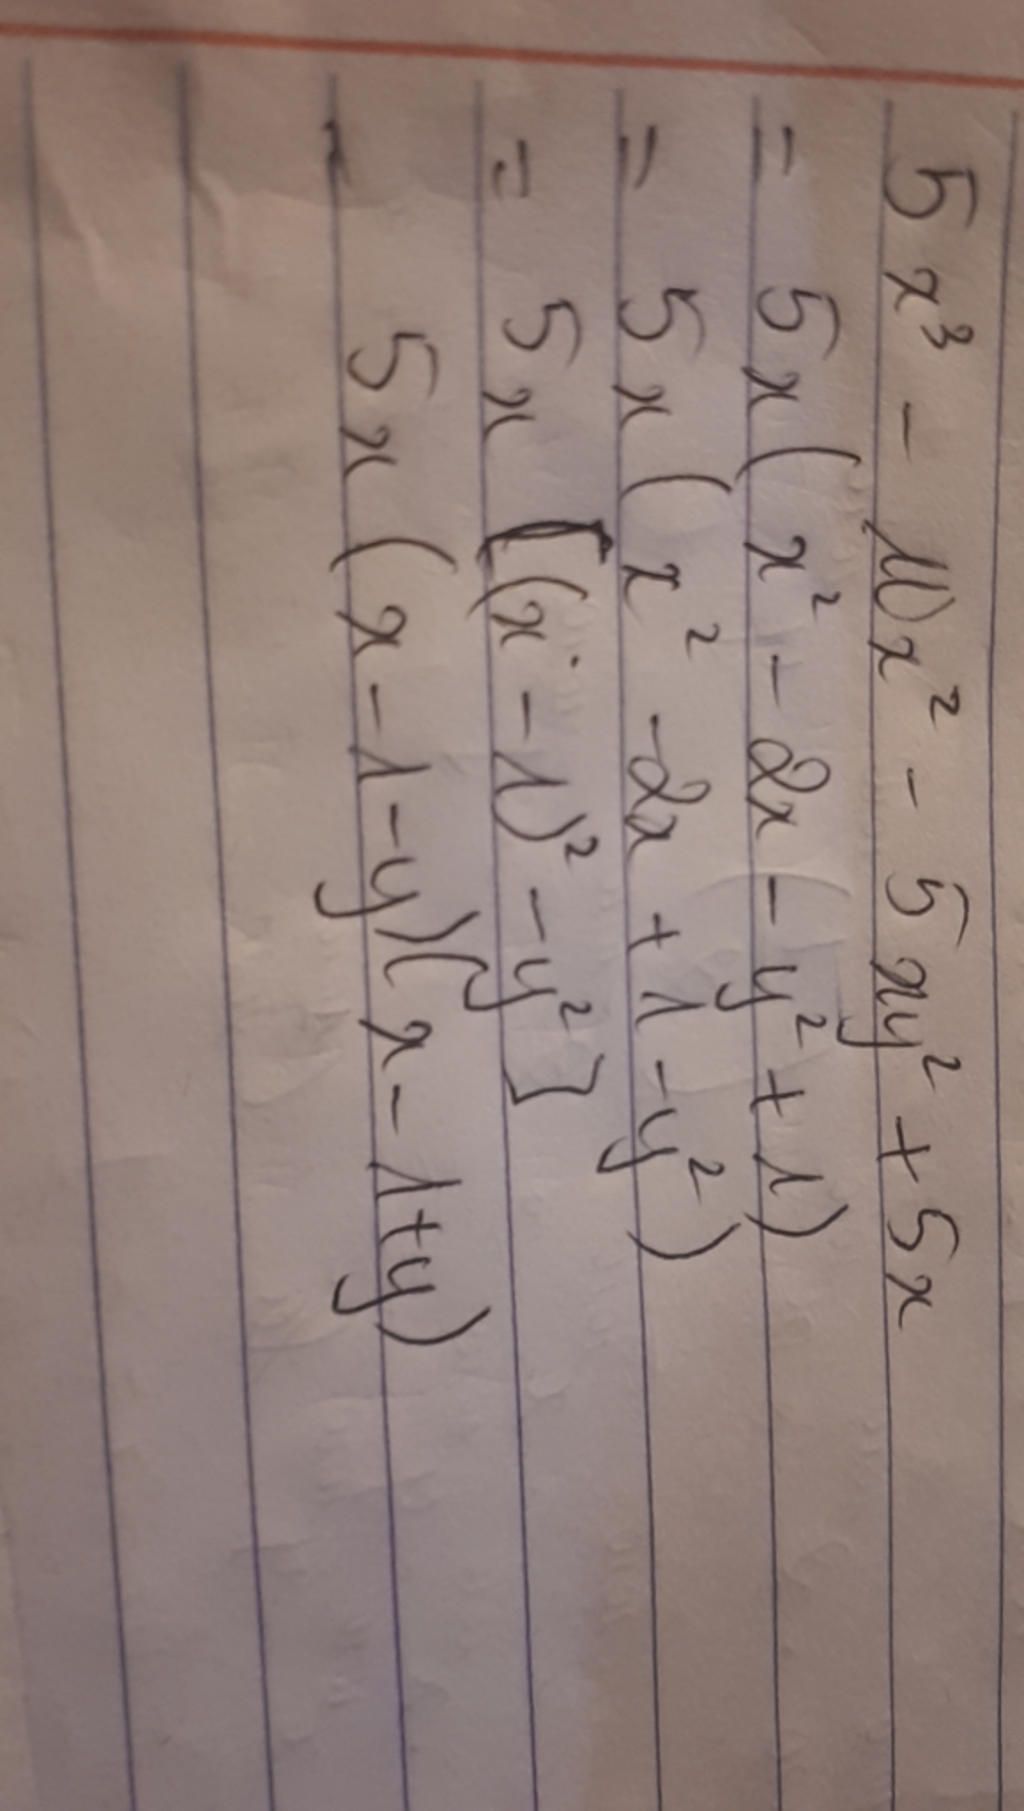 5x³ - 10x² - 5xy² + 5x
= 5x(x² - 2x - y² + 1)
= 5x(x² - 2x + 1 - y²)
= 5x[(x - 1)² - y²]
- 5x(x - 1 - y)(x - 1 + y)